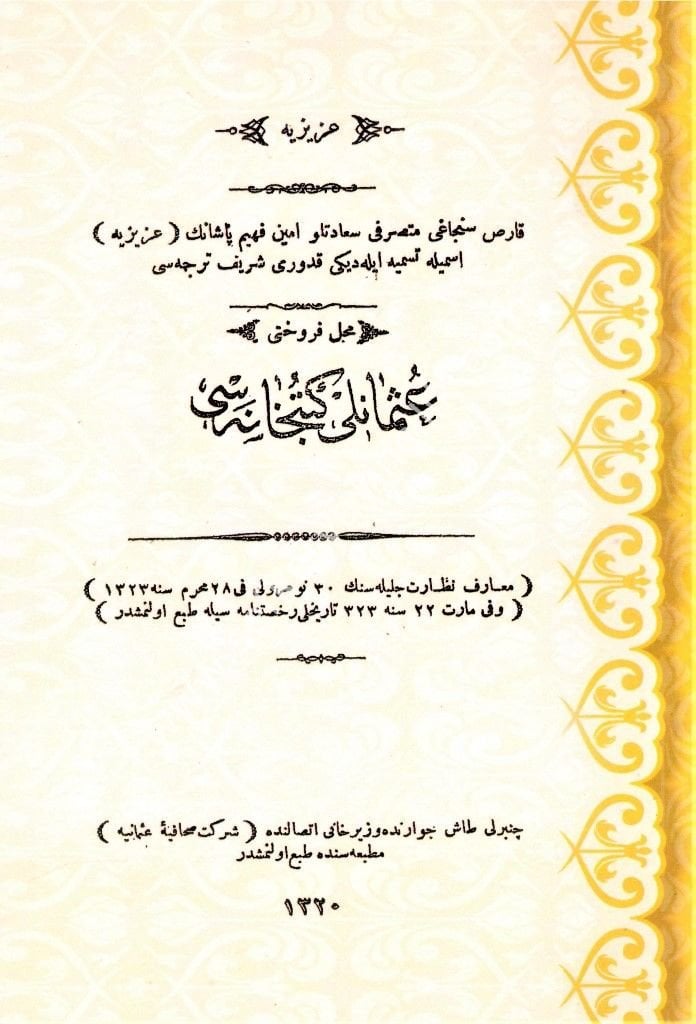 عزیزیه
قارص سنجاغی متصرفی سعادتلو امین فهیم پاشانك ( عزیزیه )
اسمیله تسمیه ایله‌دیکی قدوری شریف ترجمه‌سی
محل فروختی
عُثمانلی كُتبخانه‌سی
( معارف نظارت جلیله‌سنك ٣٠ نومرولی فی ٢٨ محرم سنه ١٣٢٣ )
( و فی مارت ٢٢ سنه ٣٢٣ تاریخلی رخصتنامه سیله طبع اولنمشدر )
چنبرلی طاش جوارنده وزیر خانی اتصالنده ( شرکت صحافیهٔ عثمانیه )
مطبعه‌سنده طبع اولنمشدر
١٣٢٠